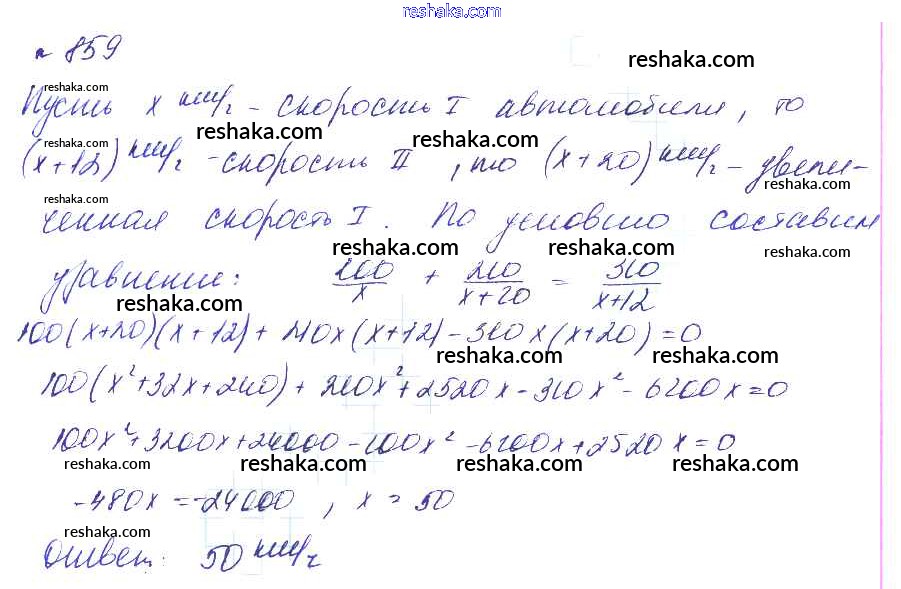 reshaka.com
n 859
reshaka.com
reshaka.com
Пусть x км/ч - скорость I автомобиля, то
reshaka.com
reshaka.com
reshaka.com
(x+12) км/ч - скорость II, то (x+20) км/ч - увели-
reshaka.com
reshaka.com
ченная скорость I. По условию составим
reshaka.com
reshaka.com
reshaka.com
уравнение: 100/x + 210/(x+20) = 310/(x+12)
reshaka.com
100(x+20)(x+12) + 210x(x+12) - 310x(x+20) = 0
reshaka.com
reshaka.com
100(x²+32x+240) + 210x² + 2520x - 310x² - 6200x = 0
100x²+3200x+24000-100x²-6200x+2520x=0
reshaka.com
reshaka.com
reshaka.com
reshaka.com
-480x=-24000, x = 50
reshaka.com
Ответ: 50 км/ч